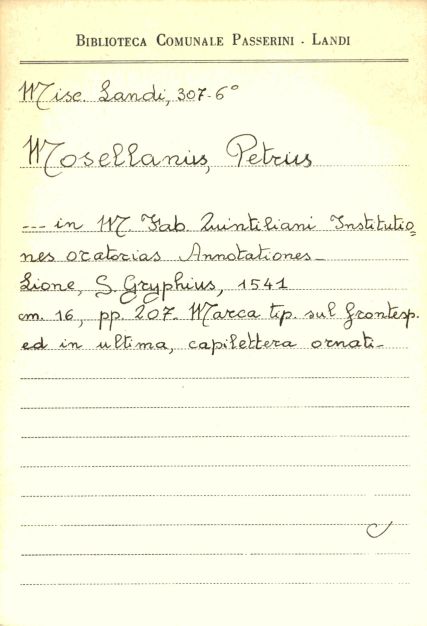 BIBLIOTECA COMUNALE PASSERINI - LANDI
Misc. Landi, 307-6°
Mosellanus, Petrus
--- in M. Fab. Quintiliani Institutio=
nes oratorias Annotationes-
Lione, S. Gryphius, 1541
cm. 16, pp. 207. Marca tip. sul frontesp.
ed in ultima, capilettera ornati-
C